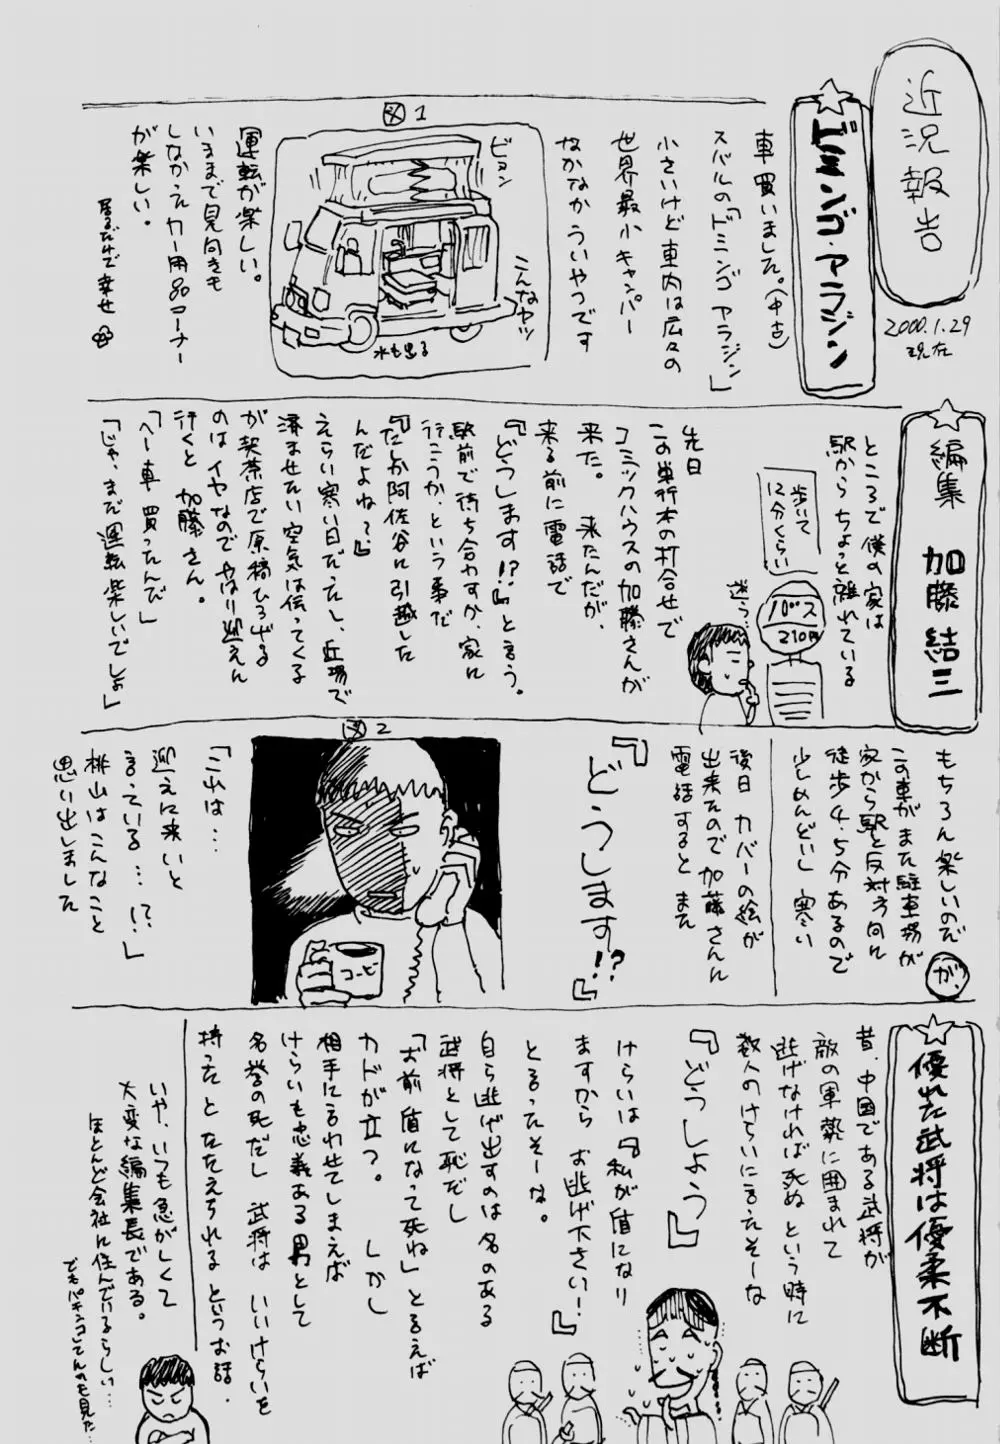 近況報告
2000.1.29
現在
ドミンゴ・アラジン
車買いました。(中古)
スバルの「ドミンゴ アラジン」
小さいけど車内は広々の
世界最小キャンパー
なかなかういやつです
図1
ビヨン
こんなヤツ
水も出る
運転が楽しい。
いままで見向きも
しなかったカー用品コーナー
が楽しい。
居るだけで幸せ
編集 加藤 結三
ところで僕の家は
駅からちょっと離れている
歩いて
12分くらい
バス
210円
迷う…
先日
この単行本の打合せで
コミックハウスの加藤さんが
来た。 来たんだが、
来る前に電話で
『どうします!?』と言う。
駅前で待ち合わすか、家に
行こうか、という事だ
『たしか阿佐谷に引越した
んだよね?』
えらい寒い日だったし、近場で
済ませたい空気は伝ってくる
が喫茶店で原稿ひろげる
のはイヤなのでやはり迎えに
行くと 加藤さん。
「へー車買ったんだ」
「じゃ、まだ運転楽しいでしょ」
もちろん楽しいのだ
が、
この車がまた駐車場が
家から駅と反対方向に
徒歩4.5分あるので
少しめんどいし 寒い
後日 カバーの絵が
出来たので 加藤さんに
電話すると また
『どうします!?』
図2
コーヒー
「これは…
迎えに来いと
言っている…!?」
桃山はこんなこと
思い出しました
優れた武将は優柔不断
昔、中国である武将が
敵の軍勢に囲まれて
逃げなければ死ぬ という時に
数人のけらいに言ったそーな
『どうしよう』
けらいは『私が盾になり
ますから お逃げ下さい!』
と言ったそーな。
自ら逃げ出すのは 名のある
武将として恥だし
「お前 盾になって死ね」と言えば
カドが立つ。 しかし
相手に言わせてしまえば
けらいも忠義ある男として
名誉の死だし 武将は いいけらいを
持ったと たたえられる というお話.
いや、いつも急がしくて
大変な編集長である。
ほとんど会社に住んでいるらしい…
でもパチンコしてんのも見た…